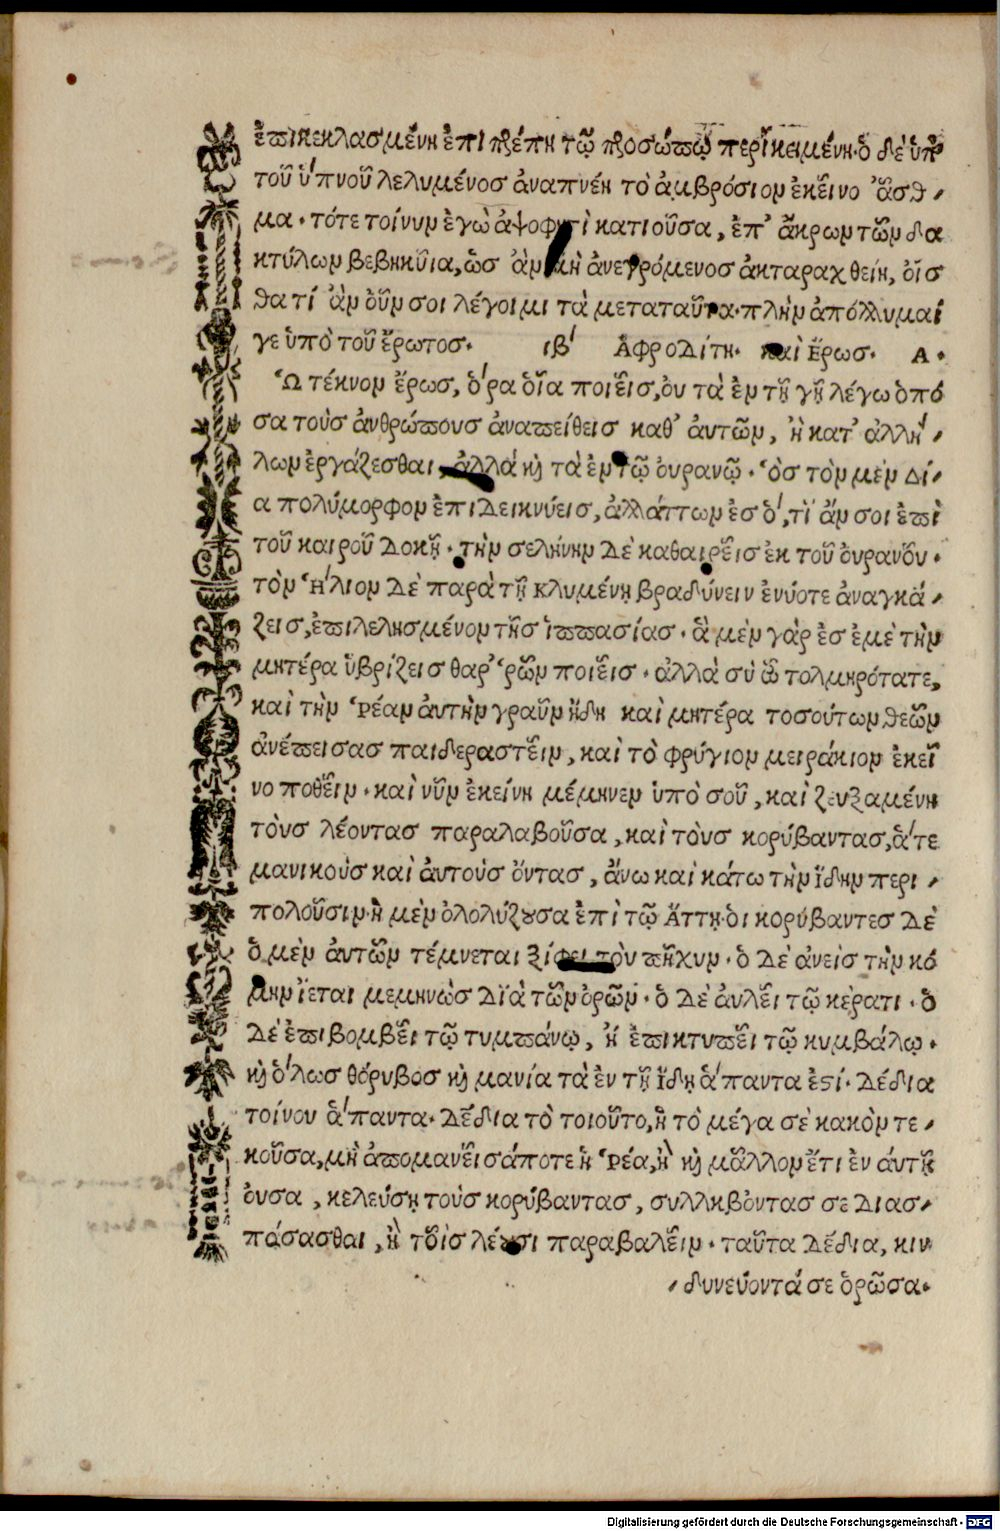 ἐπικεκλασμένη ἐπιπρέπῃ τῷ προσώπῳ περικειμένη. ὁ δὲ ὑπὸ
τοῦ ὕπνου λελυμένος ἀναπνέῃ τὸ ἀμβρόσιον ἐκεῖνο ἆσθ-
μα. τότε τοίνυν ἐγὼ ἀψοφητὶ κατιοῦσα, ἐπ' ἄκρων τῶν δα
κτύλων βεβηκυῖα, ὡς ἂν μὴ ἀνεγρόμενος ἐκταραχθείη, οἶς
θα τί ἂν οὖν σοι λέγοιμι τὰ μεταταῦτα. πλὴν ἀπόλλυμαί
γε ὑπὸ τοῦ ἔρωτος. ιβ' Ἀφροδίτη. καὶ Ἔρως. Α.
Ὦ τέκνον ἔρως, ὅρα οἷα ποιεῖς, οὐ τὰ ἐν τῇ γῇ λέγω ὁπό
σα τοὺς ἀνθρώπους ἀναπείθεις καθ' αὑτῶν, ἢ κατ' ἀλλή-
λων ἐργάζεσθαι, ἀλλὰ καὶ τὰ ἐν τῷ οὐρανῷ. ὃς τὸν μὲν Δί-
α πολύμορφον ἐπιδεικνύεις, ἀλλάττων ἐς ὅ,τι ἄν σοι ἐπὶ
τοῦ καιροῦ δοκῇ. τὴν σελήνην δὲ καθαιρεῖς ἐκ τοῦ οὐρανοῦ.
τὸν Ἥλιον δὲ παρὰ τῇ Κλυμένῃ βραδύνειν ἐνίοτε ἀναγκά-
ζεις, ἐπιλελησμένον τῆς ἱππασίας. ἃ μὲν γὰρ ἐς ἐμὲ τὴν
μητέρα ὑβρίζεις θαρ'ρῶν ποιεῖς. ἀλλὰ σὺ ὦ τολμηρότατε,
καὶ τὴν Ῥέαν αὐτὴν γραῦν ἤδη καὶ μητέρα τοσούτων θεῶν
ἀνέπεισας παιδεραστεῖν, καὶ τὸ φρύγιον μειράκιον ἐκεῖ
νο ποθεῖν. καὶ νῦν ἐκείνη μέμηνεν ὑπὸ σοῦ, καὶ ζευξαμένη
τοὺς λέοντας παραλαβοῦσα, καὶ τοὺς κορύβαντας, ἅτε
μανικοὺς καὶ αὐτοὺς ὄντας, ἄνω καὶ κάτω τὴν ἴδην περι-
πολοῦσιν. ἡ μὲν ὀλολύζουσα ἐπὶ τῷ Ἄττῃ. οἱ κορύβαντες δὲ
ὁ μὲν αὐτῶν τέμνεται ξίφει τὸν πῆχυν. ὁ δὲ ἀνεὶς τὴν κό
μην ἵεται μεμηνὼς διὰ τῶν ὀρῶν. ὁ δὲ αὐλεῖ τῷ κέρατι. ὁ
δὲ ἐπιβομβεῖ τῷ τυμπάνῳ, ἢ ἐπικτυπεῖ τῷ κυμβάλῳ.
καὶ ὅλως θόρυβος καὶ μανία τὰ ἐν τῇ Ἴδῃ ἅπαντα ἐστί. δέδια
τοίνυν ἅπαντα. δέδια τὸ τοιοῦτο, ἡ τὸ μέγα σὲ κακὸν τε-
κοῦσα, μὴ ἀπομανεῖσά ποτε ἡ Ῥέα, ἢ καὶ μᾶλλον ἔτι ἐν αὑτῇ
οὖσα, κελεύσῃ τοὺς κορύβαντας, συλλαβόντας σε διασ-
πάσασθαι, ἢ τοῖς λέουσι παραβαλεῖν. ταῦτα δέδια, κιν
δυνεύοντά σε ὁρῶσα.
Digitalisierung gefördert durch die Deutsche Forschungsgemeinschaft - DFG